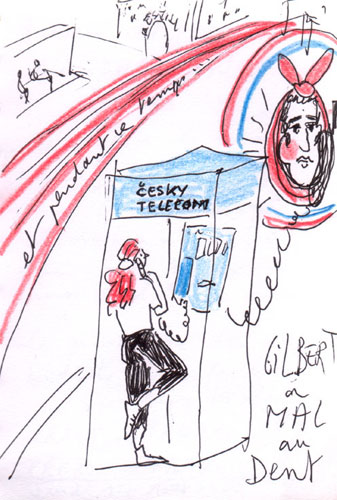 et pendant ce temps...
ČESKY
TELECOM
GILBERT
a
MAL
au
DENT